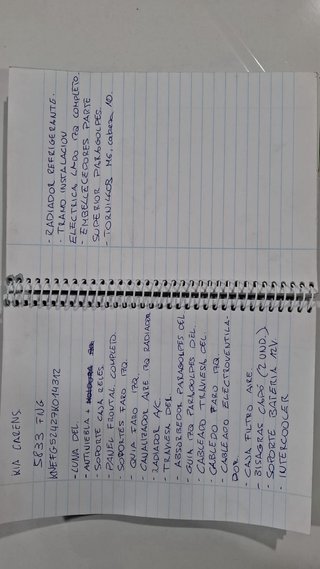 KIA CARENS
5833 FNG
- LUNA DEL.
- ANTINIEBLA +
- SOPORTE CAJA RELES.
- PANEL FRONTAL COMPLETO.
- SOPORTES FARO IZQ.
- GUIA FARO IZQ.
- CANALIZADOR AIRE IZQ RADIADOR
- RADIADOR A/C.
- TRAVIESA DEL.
- ABSORBEDOR PARAGOLPES DEL
- GUIA IZQ PARAGOLPES DEL.
- CABLEADO TRAVIESA DEL.
- CABLEDO FARO IZQ.
- CABLEADO ELECTROVENTILA-
DOR
- CAJA FILTRO AIRE.
- BISAGRAS CAPÓ (2 UND.)
- SOPORTE BATERIA 12V.
- INTERCOOLER
- RADIADOR REFRIGERANTE.
- TRAMO INSTALACION
ELECTRICA LADO IZQ COMPLETO.
- EMBELLECEDORES PARTE
SUPERIOR PARAGOLPES.
- TORNILLOS M6. cabeza 10.